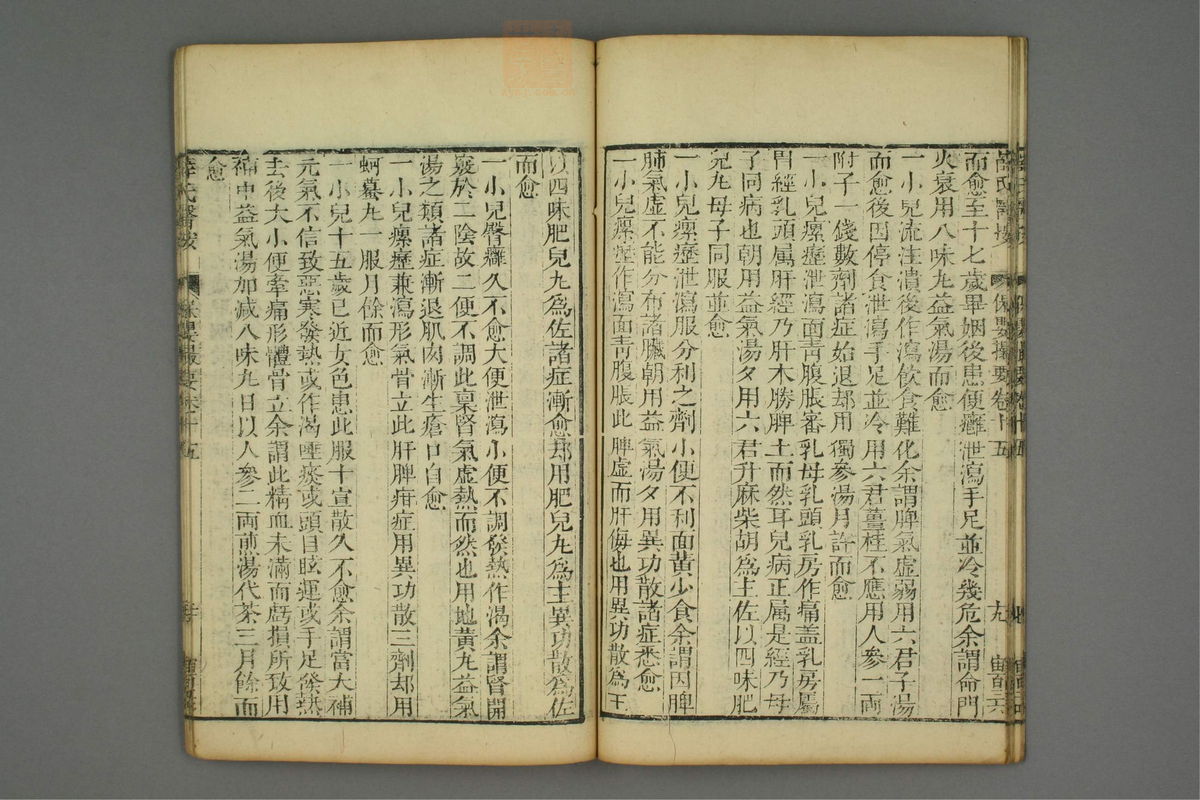 薛氏醫按 保嬰撮要卷十五 十九
而愈至十七歲畢姻後患便癰泄瀉手足並冷幾危余謂命門
火衰用八味丸益氣湯而愈
一小兒流注潰後作瀉飲食難化余謂脾氣虛弱用六君子湯
而愈後因停食泄瀉手足並冷用六君薑桂不應用人參一兩
附子一錢數劑諸症始退却用獨參湯月許而愈
一小兒瘰癧泄瀉面青腹脹審乳母乳頭乳房作痛盖乳房屬
胃經乳頭屬肝經乃肝木勝脾土而然耳兒病正屬是經乃母
子同病也朝用益氣湯夕用六君升麻柴胡爲主佐以四味肥
兒丸母子同服並愈
一小兒瘰癧泄瀉服分利之劑小便不利面黃少食余謂因脾
肺氣虛不能分布諸臟朝用益氣湯夕用異功散諸症悉愈
一小兒瘰癧作瀉面青腹脹此脾虛而肝侮也用異功散爲主
以四味肥兒丸爲佐諸症漸愈却用肥兒丸爲主異功散爲佐
而愈
一小兒臀癰久不愈大便泄瀉小便不調發熱作渴余謂腎開
竅於二陰故二便不調此稟腎氣虛熱而然也用地黃丸益氣
湯之類諸症漸退肌肉漸生瘡口自愈
一小兒瘰癧兼瀉形氣骨立此肝脾疳症用異功散三劑却用
蚵蟇丸一服月餘而愈
一小兒十五歲已近女色患此服十宣散久不愈余謂當大補
元氣不信致惡寒發熱或作渴唾痰或頭目眩運或手足倏熱
去後大小便牽痛形體骨立余謂此精血未滿而虧損所致用
補中益氣湯加減八味丸日以人參二兩煎湯代茶三月餘而
愈
薛氏醫按 保嬰撮要卷十五